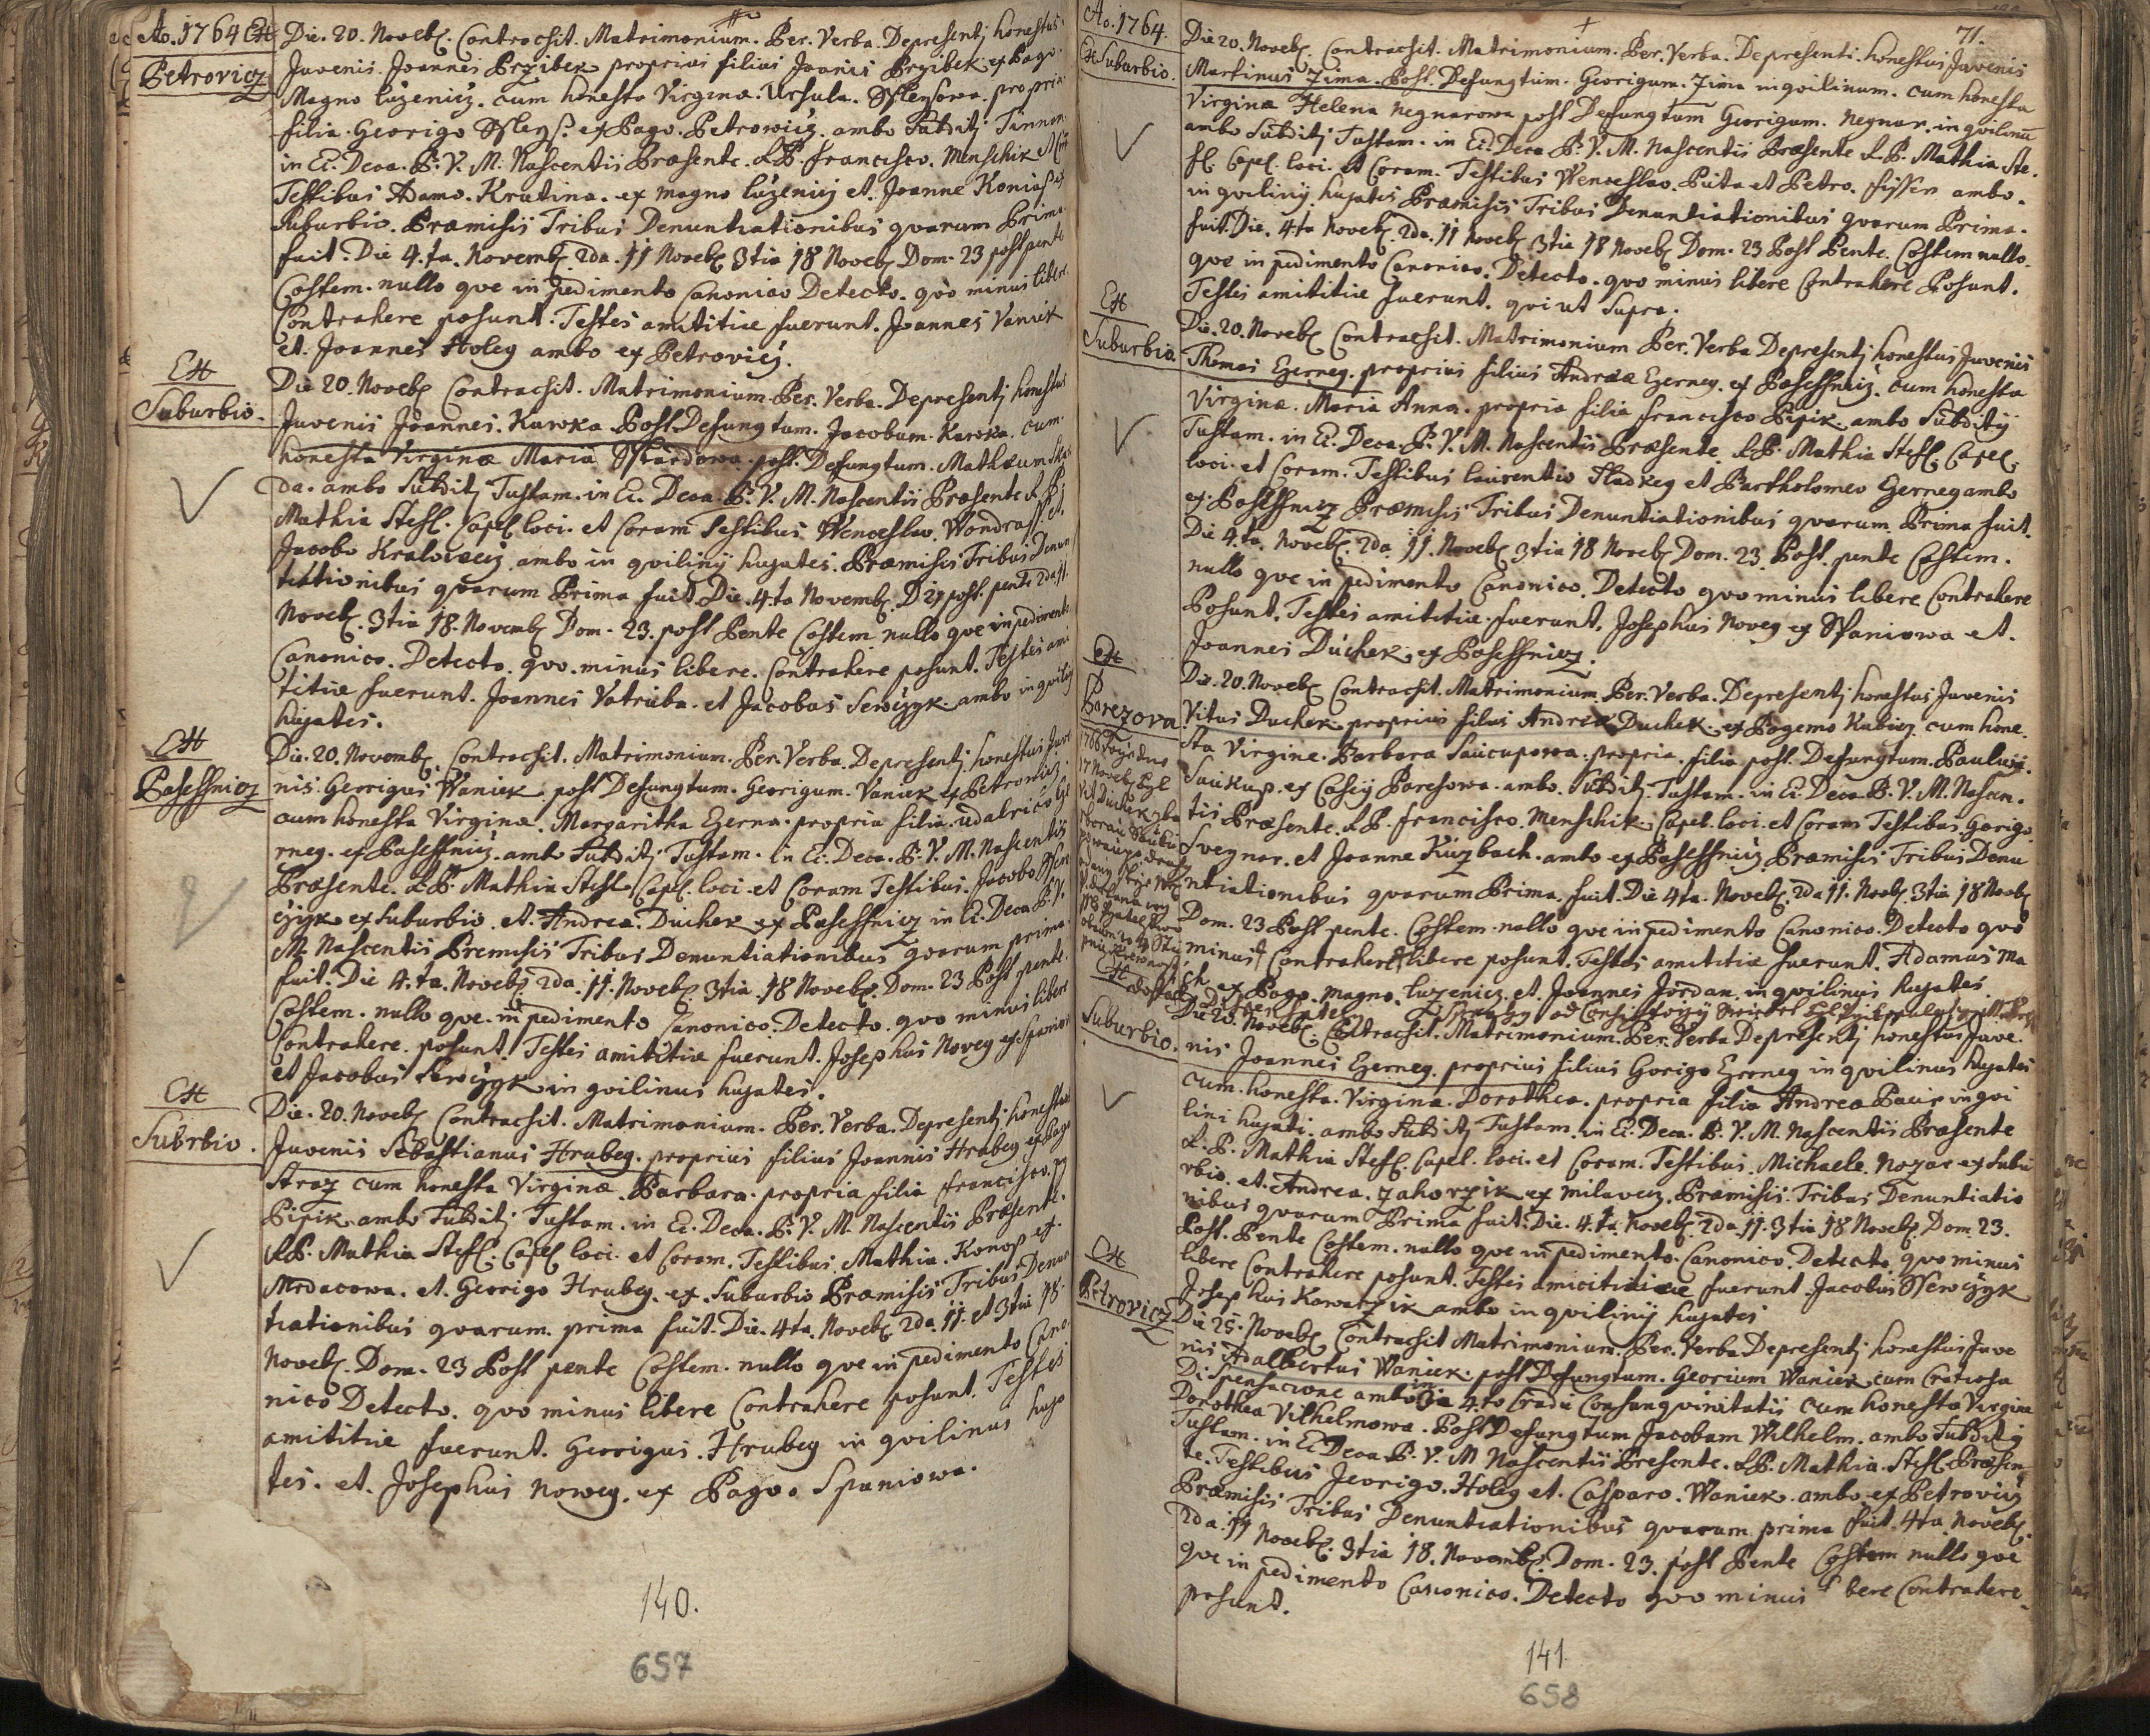 Ao. 1764 Ex
Petrovicz
Die. 20. Noveb. Contracsit. Matrimonium. Per. Verba. Depresentj honestus
Juvenis. Joannes Przibek proprius filius Joanis Przibek ex Pago.
Magno luzenicz. cum honesta Virgina. Ursula. propria
filia. Georigo ex Pago. Petrowicz. ambo Subditj
in Ei. Deca. B. V. M. Nascentis Præsente. L P. francisco. Menschik et
Testibus Adamo. Krutina. ex magno luzenicz et. Joanne Konias ex
Suburbio. Præmisis Tribus Denuntiationibus qvarum Prima.
fuit. Die 4.ta. Novemb. 2da. 11 Noveb 3tia 18 Noveb Dom. 23 post pente
Costem. nullo qve in pedimento Canonico Detecto. qvo minus libere.
Contrahere posunt. Testes amititiæ fuerunt. Joannes Vaniek
et. Joannes Holeg ambo ex Petrovicz.
Ex
Suburbio.
Die 20. Noveb Contracsit. Matrimonium. Per. Verba. Depresentj honestus
Juvenis Joannes. Kawka Post Defungtum. Jacobum. Kawka. cum.
honesta Virginæ Maria post. Defungtum. Mathæum
da. ambo Subditj Tustam. in Ei. Deca. B. V. M. Nascentis Præsente L. P.
Mathia Stefl. Capel loci. et Coram Testibus Wenceslao. Wondrass. et.
Jacobo Kralovecz. ambo in qvilinij hujates. Præmisis Tribus Denun
tiationibus qvarum Prima fuit Die. 4.ta Novemb. post. pente 2da 11.
Noveb. 3tia 18. Novemb Dom. 23. post Pente Costem nullo qve in pedimento
Canonico. Detecto. qvo. minus libere. Contrahere posunt. Testes ami
titiæ fuerunt. Joannes Vatruba. et Jacobus Sewczyk. ambo in qvilinij
hujates.
Ex
Pasessnicz
Die. 20. Novemb. Contracsit. Matrimonium. Per. Verba. Depresentj. honestus Juve
nis. Georigus Waniek post Defungtum. Georigum. Vaniek ex Petrowicz.
cum honesta Virgina. Margaritha Ezerna. propria filia. udalrico Eze
rneg. ex Pasessnicz. ambo Subditj Tustam. in Ei. Deca. B. V. M. Nascentis
Præsente. L P. Mathia Stefl. Capel. loci. et Coram Testibus. Jacobo Ssew
czyk ex Suburbio. et. Andrea. Duchek ex Pasessnicz in Ei. Deca B. V.
M. Nascentis Premisis Tribus Denuntiationibus qvarum prima
fuit. Die 4.ta. Noveb 2da. 11. Noveb. 3tia. 18 Noveb. Dom. 23 Post pente.
Costem. nullo qve. in pedimento Canonico. Detecto. qvo minus libere
Contrahere. posunt. Testes amititiæ fuerunt. Josephus Noveg ex Spaniow
et Jacobus Sewczyk in qvilinus hujates.
Ex
Suburbio.
Die. 20. Noveb Contracsit. Matrimonium. Per. Verba. Depresentj honestus
Juvenis Sebastianus Hrubeg. proprius filius Joannis Hrubeg ex Pago
Straz cum honesta Virginæ. Barbara. propria filia francisco.
Pipik. ambo Subditj Tustam. in Ei. Deca. B. V. M. Nascentis Præsent.
L P. Mathia Stefl. Capel loci. et Coram. Testibus. Mathia. Konop ex.
Mrdacowa. et. Georigo Hrubeg. ex. Suburbio Præmisis Tribus. Denun
tiationibus qvarum. prima fuit. Die. 4ta. Noveb. 2da. 11. et 3tia 18.
Noveb. Dom. 23 Post pente Costem. nullo qve in pedimento Cano
nico Detecto. qvo minus libere Contrahere posunt. Testes
amititiæ fuerunt. Georigus. Hrubeg in qvilinus huja
tes. et. Josephus noweg. ex Pago. Spaniowa.
140.
657
Ao. 1764.
71.
Ex Suburbio.
Die 20. Noveb. Contracsit. Matrimonium. Per. Verba. Depresenti. honestus Juvenis
Martinus Zima. Post. Defungtum. Georigum. Zima in qvilinum. cum honesta
Virginæ Helena Negnarowa post Defungtum Georigum. Negnar. in qvilinu
ambo Subditj Tustam. in Ei. Deca B. V. M. Nascentis Præsente L. P. Mathia. Ste.
fl. Capel. loci. et Coram. Testibus Wenceslao. Puta et Petro. fisser ambo.
in qvilinij. hujates Præmisis Tribus Denuntiationibus qvarum Prima.
fuit. Die. 4ta Noveb. 2da. 11 Noveb. 3tia 18 Noveb Dom. 23 Post Pente. Costem nullo
qve in pedimento Canonico. Detecto. qvo minus libere Contrahere Posunt.
Testes amititiæ fuerunt. qvi ut Supra.
Ex
Suburbio.
Die. 20. Noveb Contracsit. Matrimonium Per. Verba Depresentj honestus Juvenis
Thomas Ezerneg. proprius filius Andreæ Ezerneg. ex Pasessnicz. cum honesta
Virginæ. Maria Anna. propria filia francisco Pipik. ambo Subditij
Tustam. in Ei. Deca. B. V. M. Nascentis Præsente L P. Mathia Stefl. Capel.
loci. et Coram. Testibus laurentio Hladkeg et Bartholomeo Gerneg ambo
ex. Pasessnicz Præmisis Tribus Denuntiationibus qvarum Prima fuit.
Die 4.ta. Noveb. 2da. 11. Noveb 3tia 18 Noveb Dom. 23. Post. pente Costem.
nullo qve in pedimento Canonico. Detecto qvo minus libere Contrahere
Posunt. Testes amititiæ fuerunt. Josephus Noveg ex Spaniowa et.
Joannes Duchek ex Pasessnicz.
Ex
Parezova
Die. 20. Noveb Contracsit. Matrimonium Per. Verba. Depresentj honestus Juvenis
Vitus Duchek. proprius filius Andreæ Duchek. ex Pogemo Kubicz cum hone.
sta Virgine. Barbara Saucupowa. propria. filia post. Defungtum. Paulus.
Saukup. ex Paresowa. ambo. Subditj. Tustam. in Ei. Deca B. V. M. Nascen.
tis Præsente. L P. francisco. Menschik. Capel. loci. et Coram Testibus. Gorigo
Svegnar. et Joanne Kuzbach. ambo ex Pasessnicz Præmisis Tribus Denu
ntiationibus qvarum Prima. fuit. Die 4ta. Noveb. 2da 11. Noveb. 3tia 18 Noveb
Dom. 23 Post pente. Costem. nullo qve in pedimento Canonico. Detecto qvo
minus Contrahere libere posunt. Testes amititiæ fuerunt. Adamus Ma
ch. ex Pago. magno. luzenicz. et. Joannes Jordan. in qvilinus hujates.
Ex
Suburbio.
Die 20. Noveb. Contracsit. Matrimonium. Per. Verba Depresentj honestus Juve.
nis Joannes Ezerneg. proprius filius Gorigo Ezerneg in qvilinus hujates
cum. honesta. Virgina. Dorothea. propria filia Andrea Pacir in qvi
lini hujati. ambo Subditj Tustam. in Ei. Deca. B. V. M. Nascentis Præsente
L. P. Mathia Stefl. Capel. loci. et Coram. Testibus. Michaele Nozar ex Subu
rbio. et. Andrea. Zahorzik ex milavecz. Præmisis. Tribus Denuntiatio
nibus qvarum Prima fuit. Die. 4.ta. Noveb. 2da. 11. 3tia 18 Noveb. Dom. 23.
Post. Pente Costem. nullo qve in pedimento. Canonico. Detecto qvo minus
libere Contrahere posunt. Testes amicitiæ fuerunt. Jacobus Ssewczyk
Josephus Kowarzik ambo in qvilinij hujates
Ex
Petrovicz
Die 25. Noveb Contracsit Matrimonium. Per. Verba Depresentj honestus Juve
nis Adalbertus Waniek. post Defungtum. Georium Waniek cum Gratiosa
Dispensacione ambo in 4.to Gradu Consangvinitatis cum honesta Virgine
Dorothea Vilhelmowa. Post Defungtum Jacobum Wilhelm. ambo Subditj
Tustam. in Ei. Deca. B. V. M Nascentis Presente. L P. Mathia. Stefl. Præsen
te. Testibus Jeorigo. Holeg et. Casparo. Waniek. ambo ex Petrovicz
Præmisis Tribus Denuntiationibus qvarum prima fuit. 4ta Noveb.
2da. 11 Noveb. 3tia 18. Novemb. Dom. 23. post Pente Costem nullo qve
qve in pedimento Canonico. Detecto qvo minus libere Contrahere.
posunt.
141.
658